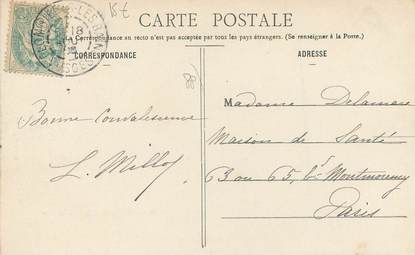 15€
CARTE POSTALE
La Correspondance au recto n'est pas acceptée par tous les pays étrangers. (Se renseigner à la Poste.)
CORRESPONDANCE
ADRESSE
Bonne Convalescence
L. Millot
Madame Delamare
Maison de Santé
63 ou 65, bd Montmorency
Paris